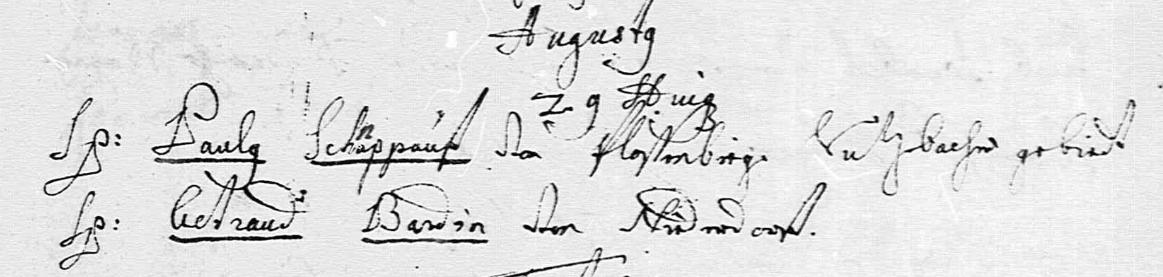 Augustg
29 Huig
Sp: Paulg Schnappauf von Flossenbirg Sultzbacher gebiedt
Sp: Gertraud Bardin von Niderndorf.